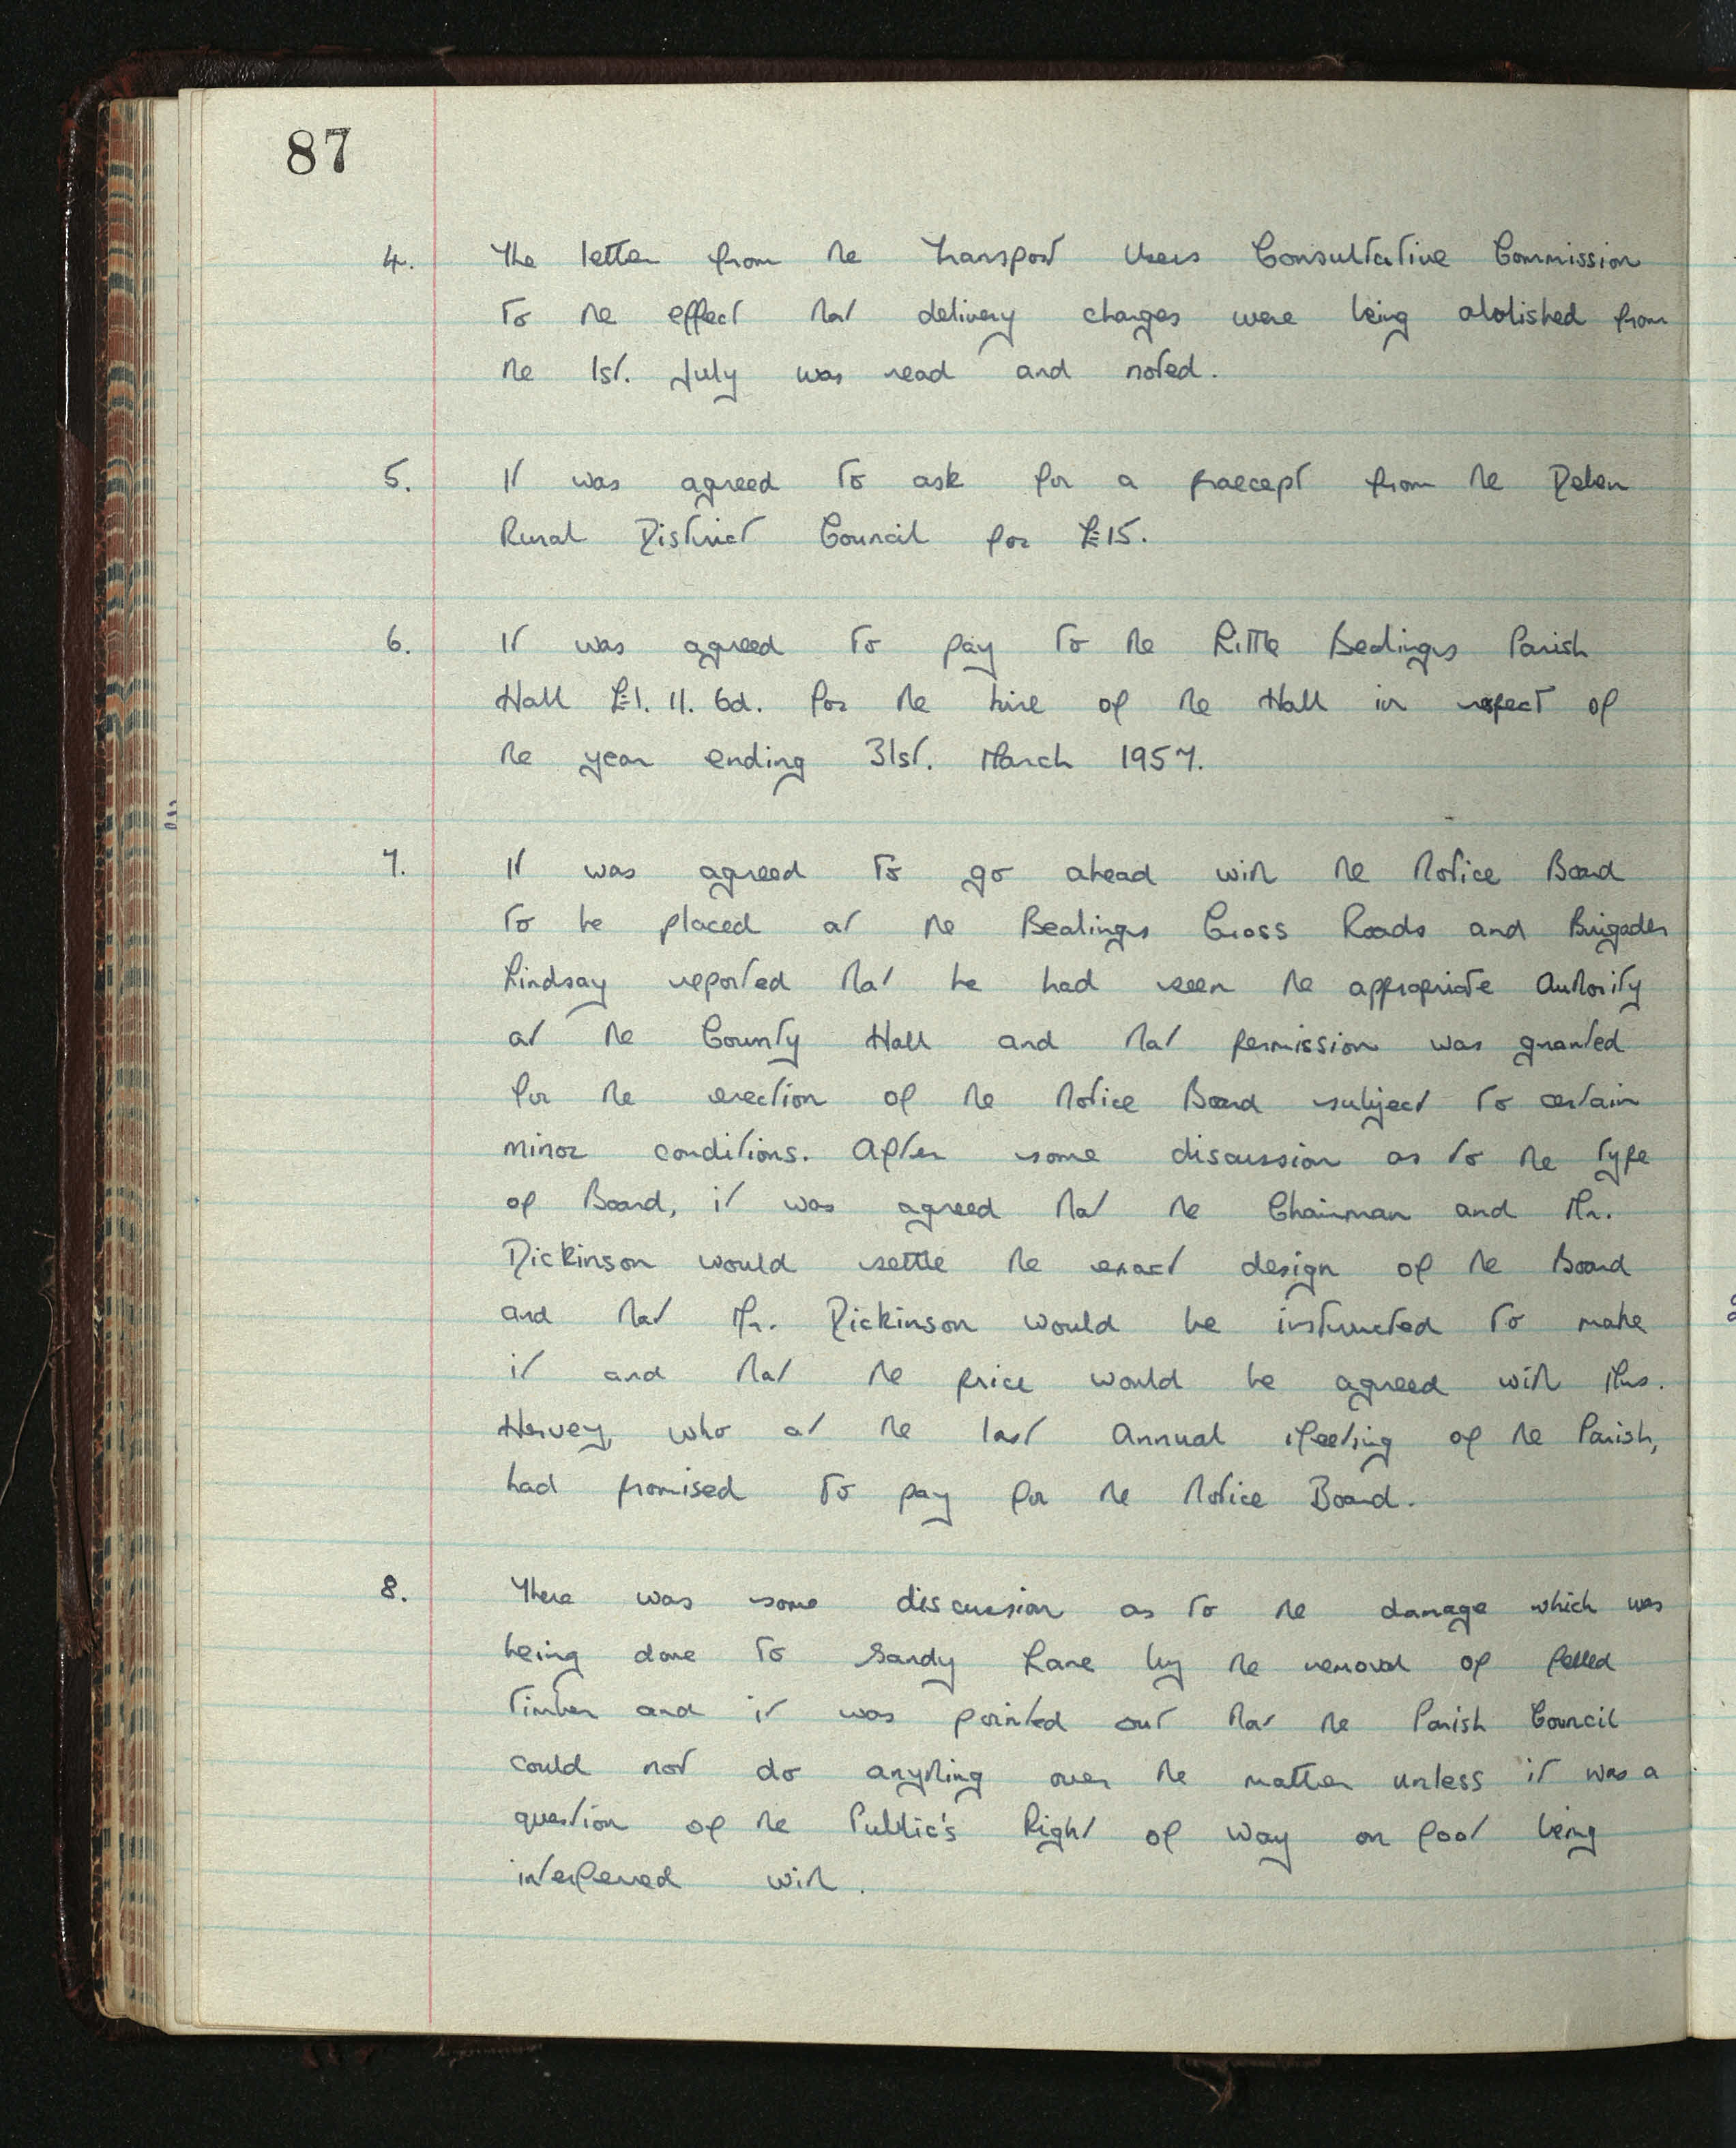 87
4. The letter from the Transport Users Consultative Commission
to the effect that delivery charges were being abolished from
the 1st. July was read and noted.
5. It was agreed to ask for a praecept from the Deben
Rural District Council for £15.
6. It was agreed to pay to the Little Bealings Parish
Hall £1. 11. 6d. for the hire of the Hall in respect of
the year ending 31st. March 1957.
7. It was agreed to go ahead with the Notice Board
to be placed at the Bealings Cross Roads and Brigadier
Lindsay reported that he had seen the appropriate Authority
at the County Hall and that permission was granted
for the erection of the Notice Board subject to certain
minor conditions. After some discussion as to the type
of Board, it was agreed that the Chairman and Mr.
Dickinson would settle the exact design of the Board
and that Mr. Dickinson would be instructed to make
it and that the price would be agreed with Mrs.
Hervey, who at the last Annual Meeting of the Parish,
had promised to pay for the Notice Board.
8. There was some discussion as to the damage which was
being done to Sandy Lane by the removal of felled
timber and it was pointed out that the Parish Council
could not do anything over the matter unless it was a
question of the Public's Right of Way on foot being
interferred with.